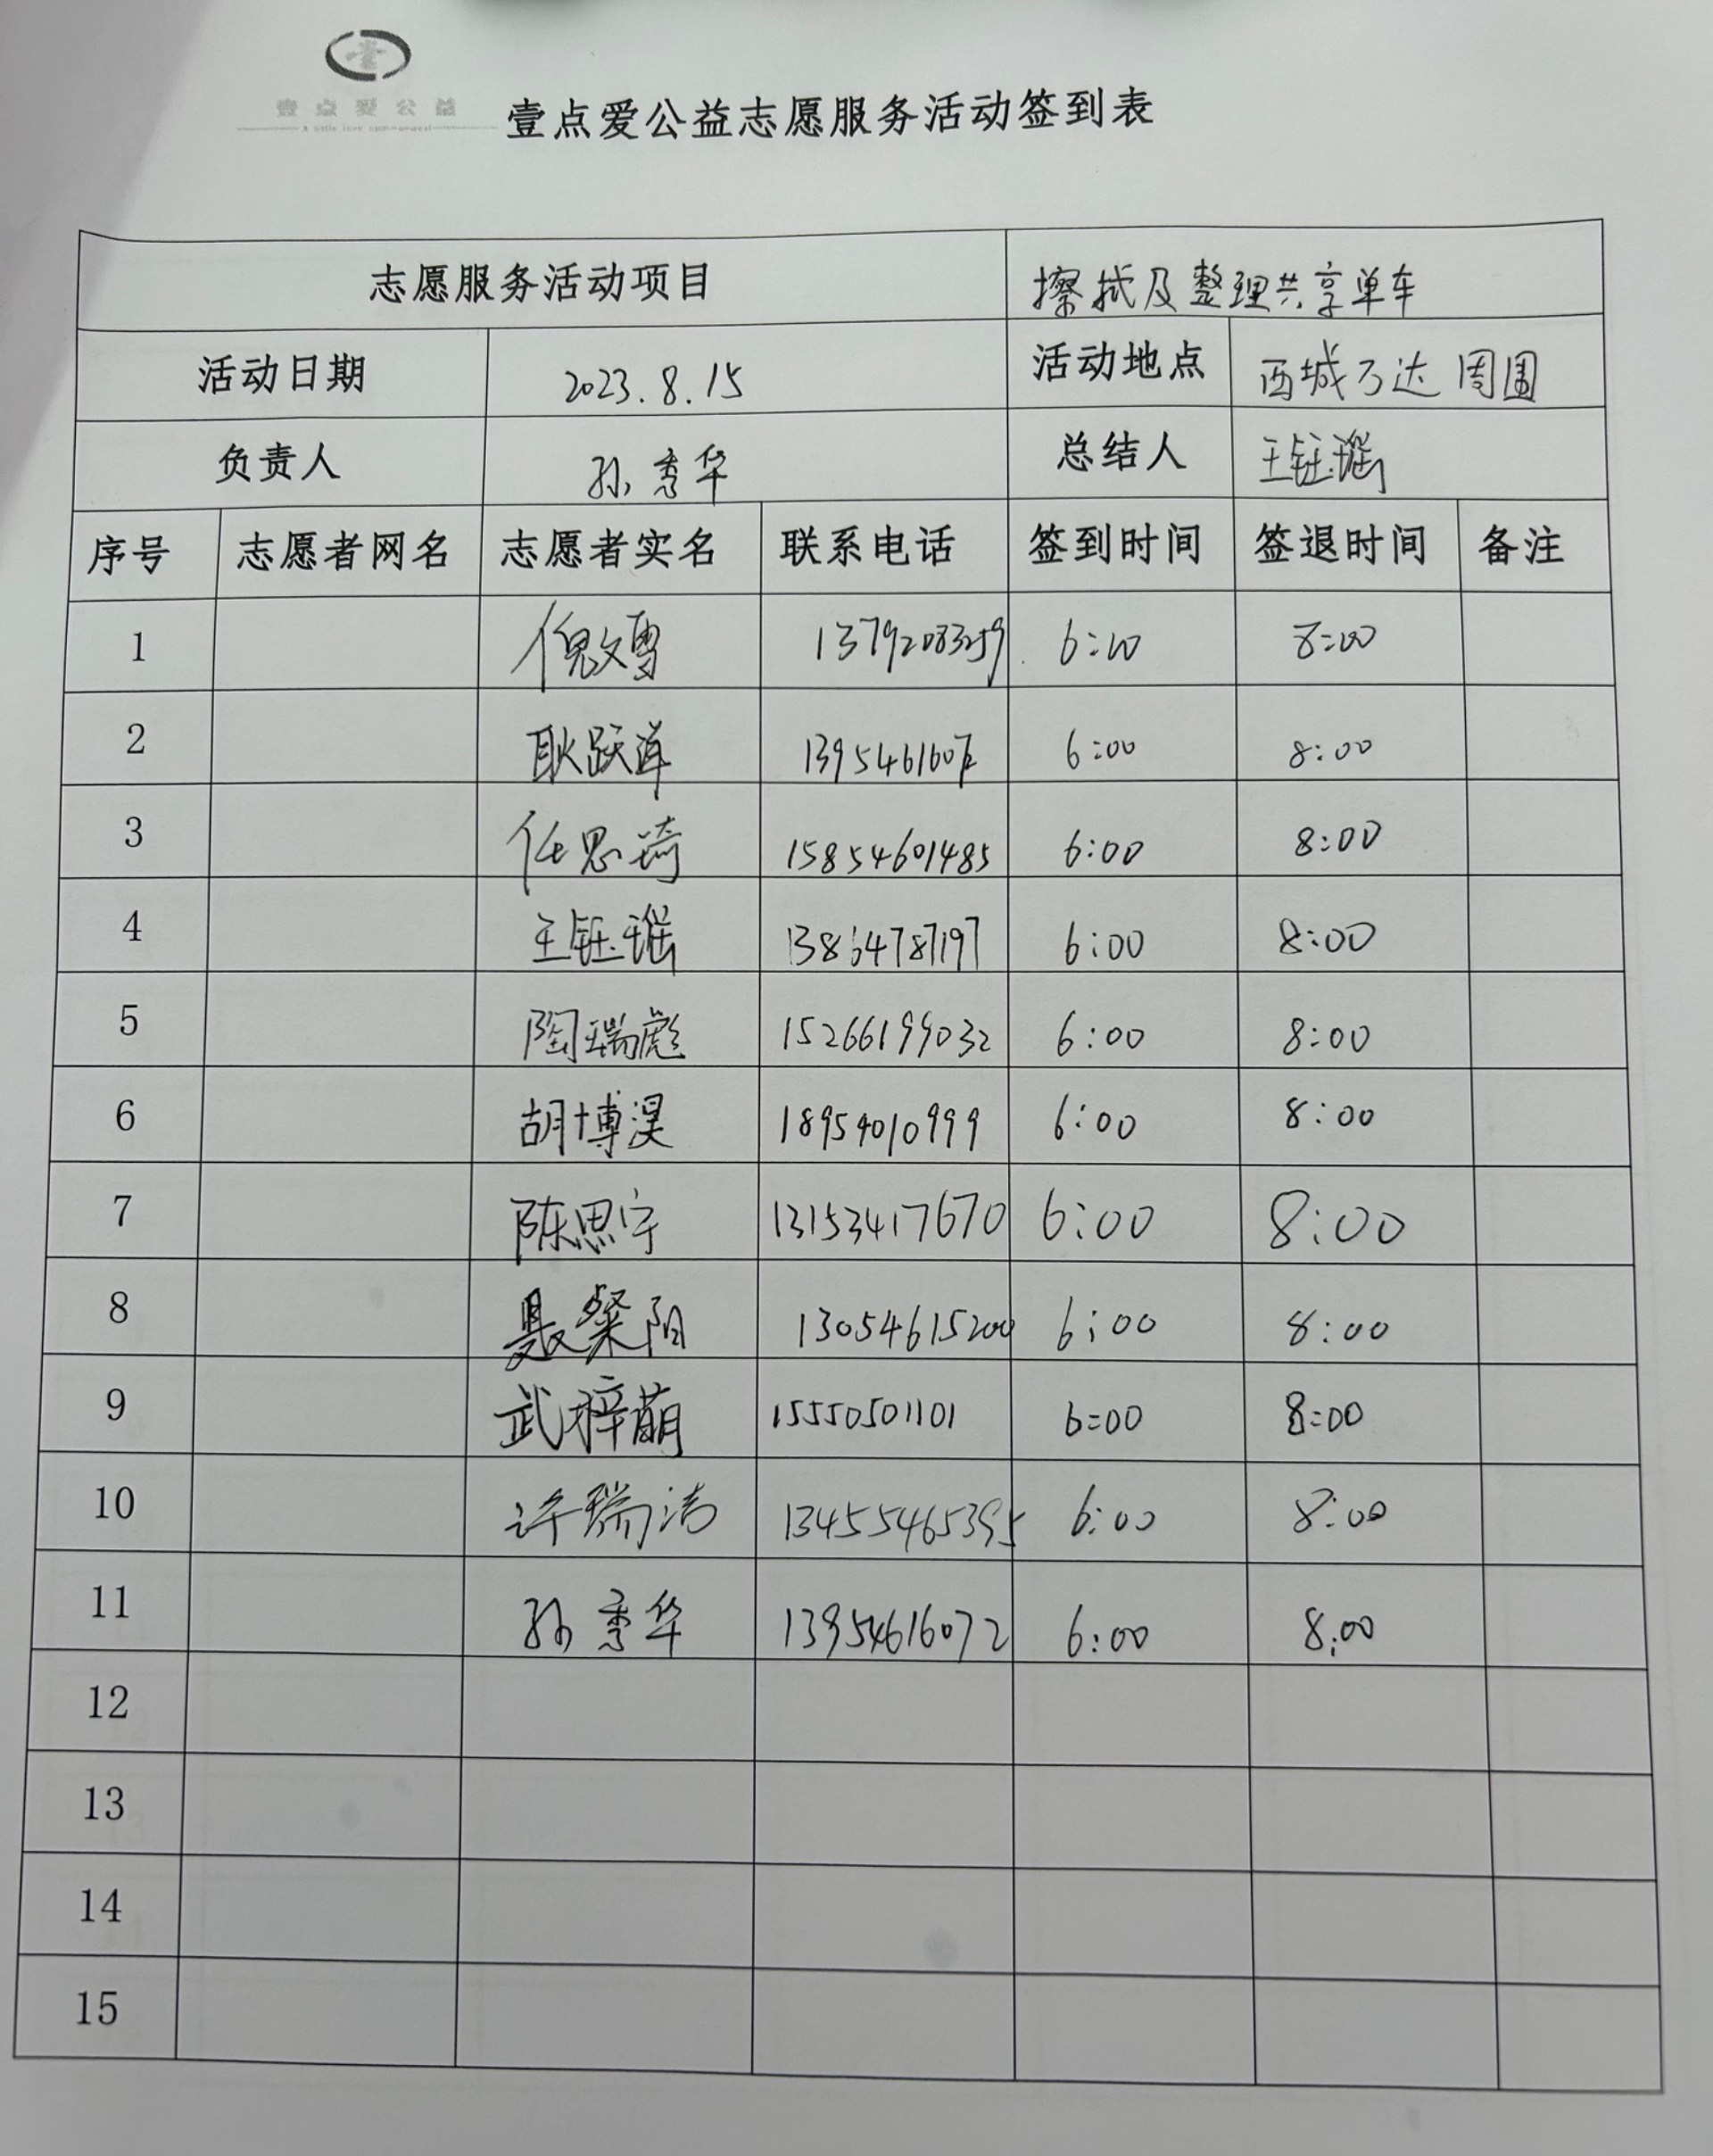 壹点爱公益
A little love commonweal
壹点爱公益志愿服务活动签到表
志愿服务活动项目 擦拭及整理共享单车
活动日期 2023.8.15 活动地点 西城万达周围
负责人 孙秀华 总结人 王钰瑶
序号 志愿者网名 志愿者实名 联系电话 签到时间 签退时间 备注
1 倪文雪 13792083259 6:00 8:00
2 耿跃 6:00 8:00
3 任思琦 15854601485 6:00 8:00
4 王钰瑶 13864787197 6:00 8:00
5 陶瑞彪 15266199032 6:00 8:00
6 胡博淏 18954010999 6:00 8:00
7 陈思宇 13153417670 6:00 8:00
8 聂燊阳 13054615200 6:00 8:00
9 武梓萌 15550501101 6:00 8:00
10 许瑞洁 13455465395 6:00 8:00
11 孙秀华 13954616072 6:00 8:00
12
13
14
15